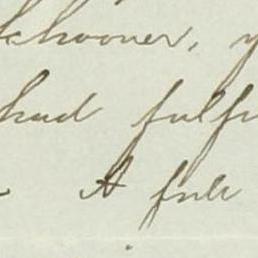 schooner,
had fulf
A full